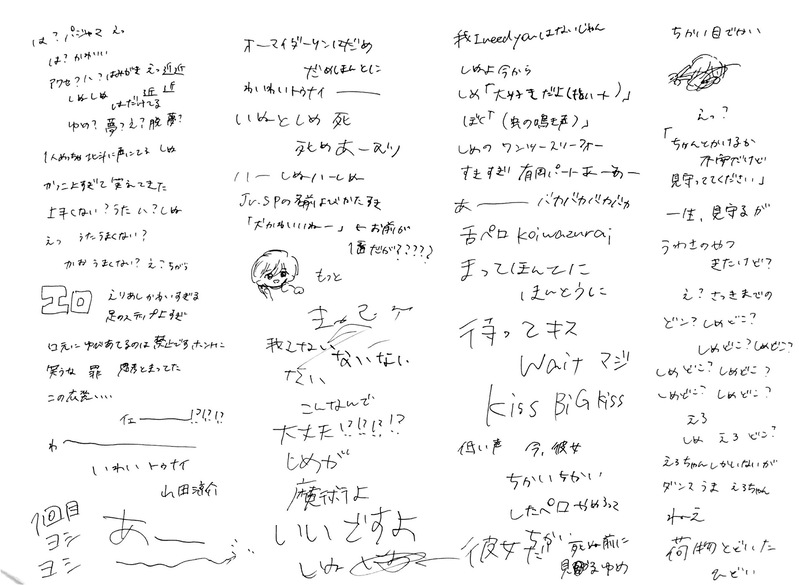 は？パジャマ えっ
は？かわいい
アクセ？ハ？はみがき えっ 近近
しぬしぬ 近 近
はだけてる
ゆめ？夢？え？脱 夢？
1人めっちゃ北斗に声にてる しぬ
かっこ上すぎて笑えてきた
上手くない？うた ハ？しぬ
えっ うたうまくない？
かおうまくない？え？ちがう
エロ
えりあしかわいすぎる
足のステップ上すぎ
口元にゆびあてるのは禁止ですホントに
笑うな 罪
この広発‥‥
イェーーー!?!?!?
わーーーーー
いわいトゥナイ
山田涼介
1回目
ヨシ
ヨシ
あー
オーマイダーリンはだめ
だめほんとに
わいわいトゥナイーー
いぬとしぬ 死
死ぬあーエッソ
ハー しぬハーしぬ
Jr.SPの名前よびかたすき
「犬かわいいねー」←お前が
1番だが????
もっと
我してない ないない
だい
こんなんで
大丈夫!?!?!?!?
じぬが
魔術よ
いいですよ
しぬ
我 I need you はないじゃん
しぬよ 今から
しぬ「大好きだよ(指ハート)」
ぼく「(虫の鳴き声)」
しぬの ワンツースリーフォー
すきすぎ 有岡パートあーあー
あーーー バカバカバカバカ
舌ペロ koiwazurai
まってほんとに
ほんとうに
待ってキス
Wait マジ
Kiss BiG Kiss
低い声 今、彼女
ちかいちかい
したペロやめろって
彼女だ ちかい
死ぬ前に
見るゆめ
ちかい 目でかい
えっ？
「ちゃんとかけるか
不安だけど
見守っててください」
一生、見守るが
うわさのやつ
きたけど？
え？さっきまでの
どン？しぬどこ？
しぬどこ？しぬどこ？
しぬどこ？しぬどこ？
しぬどこ？しぬどこ？
えろ
しぬ えろ どこ？
えろちゃんしかいないが
ダンスうま えろちゃん
ねーえ
荷物とどいた
ひどい